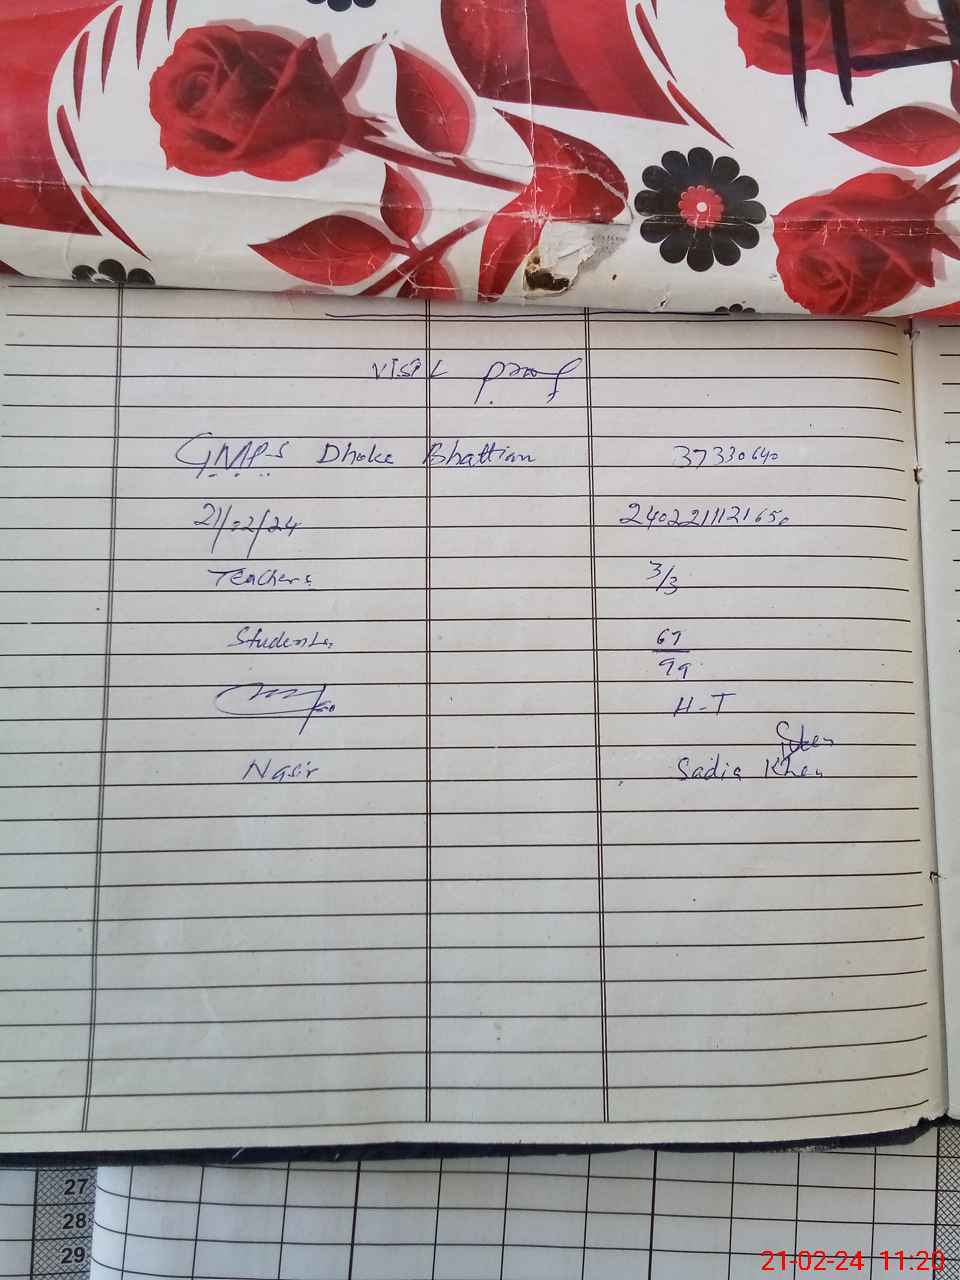 Visit Proof
GMPS Dhoke Bhattian 37330640
21/02/24 2402211121650
Teachers 3/3
Students 67
99
H-T
Nasir Sadia Khan
27
28
29
21-02-24 11:20